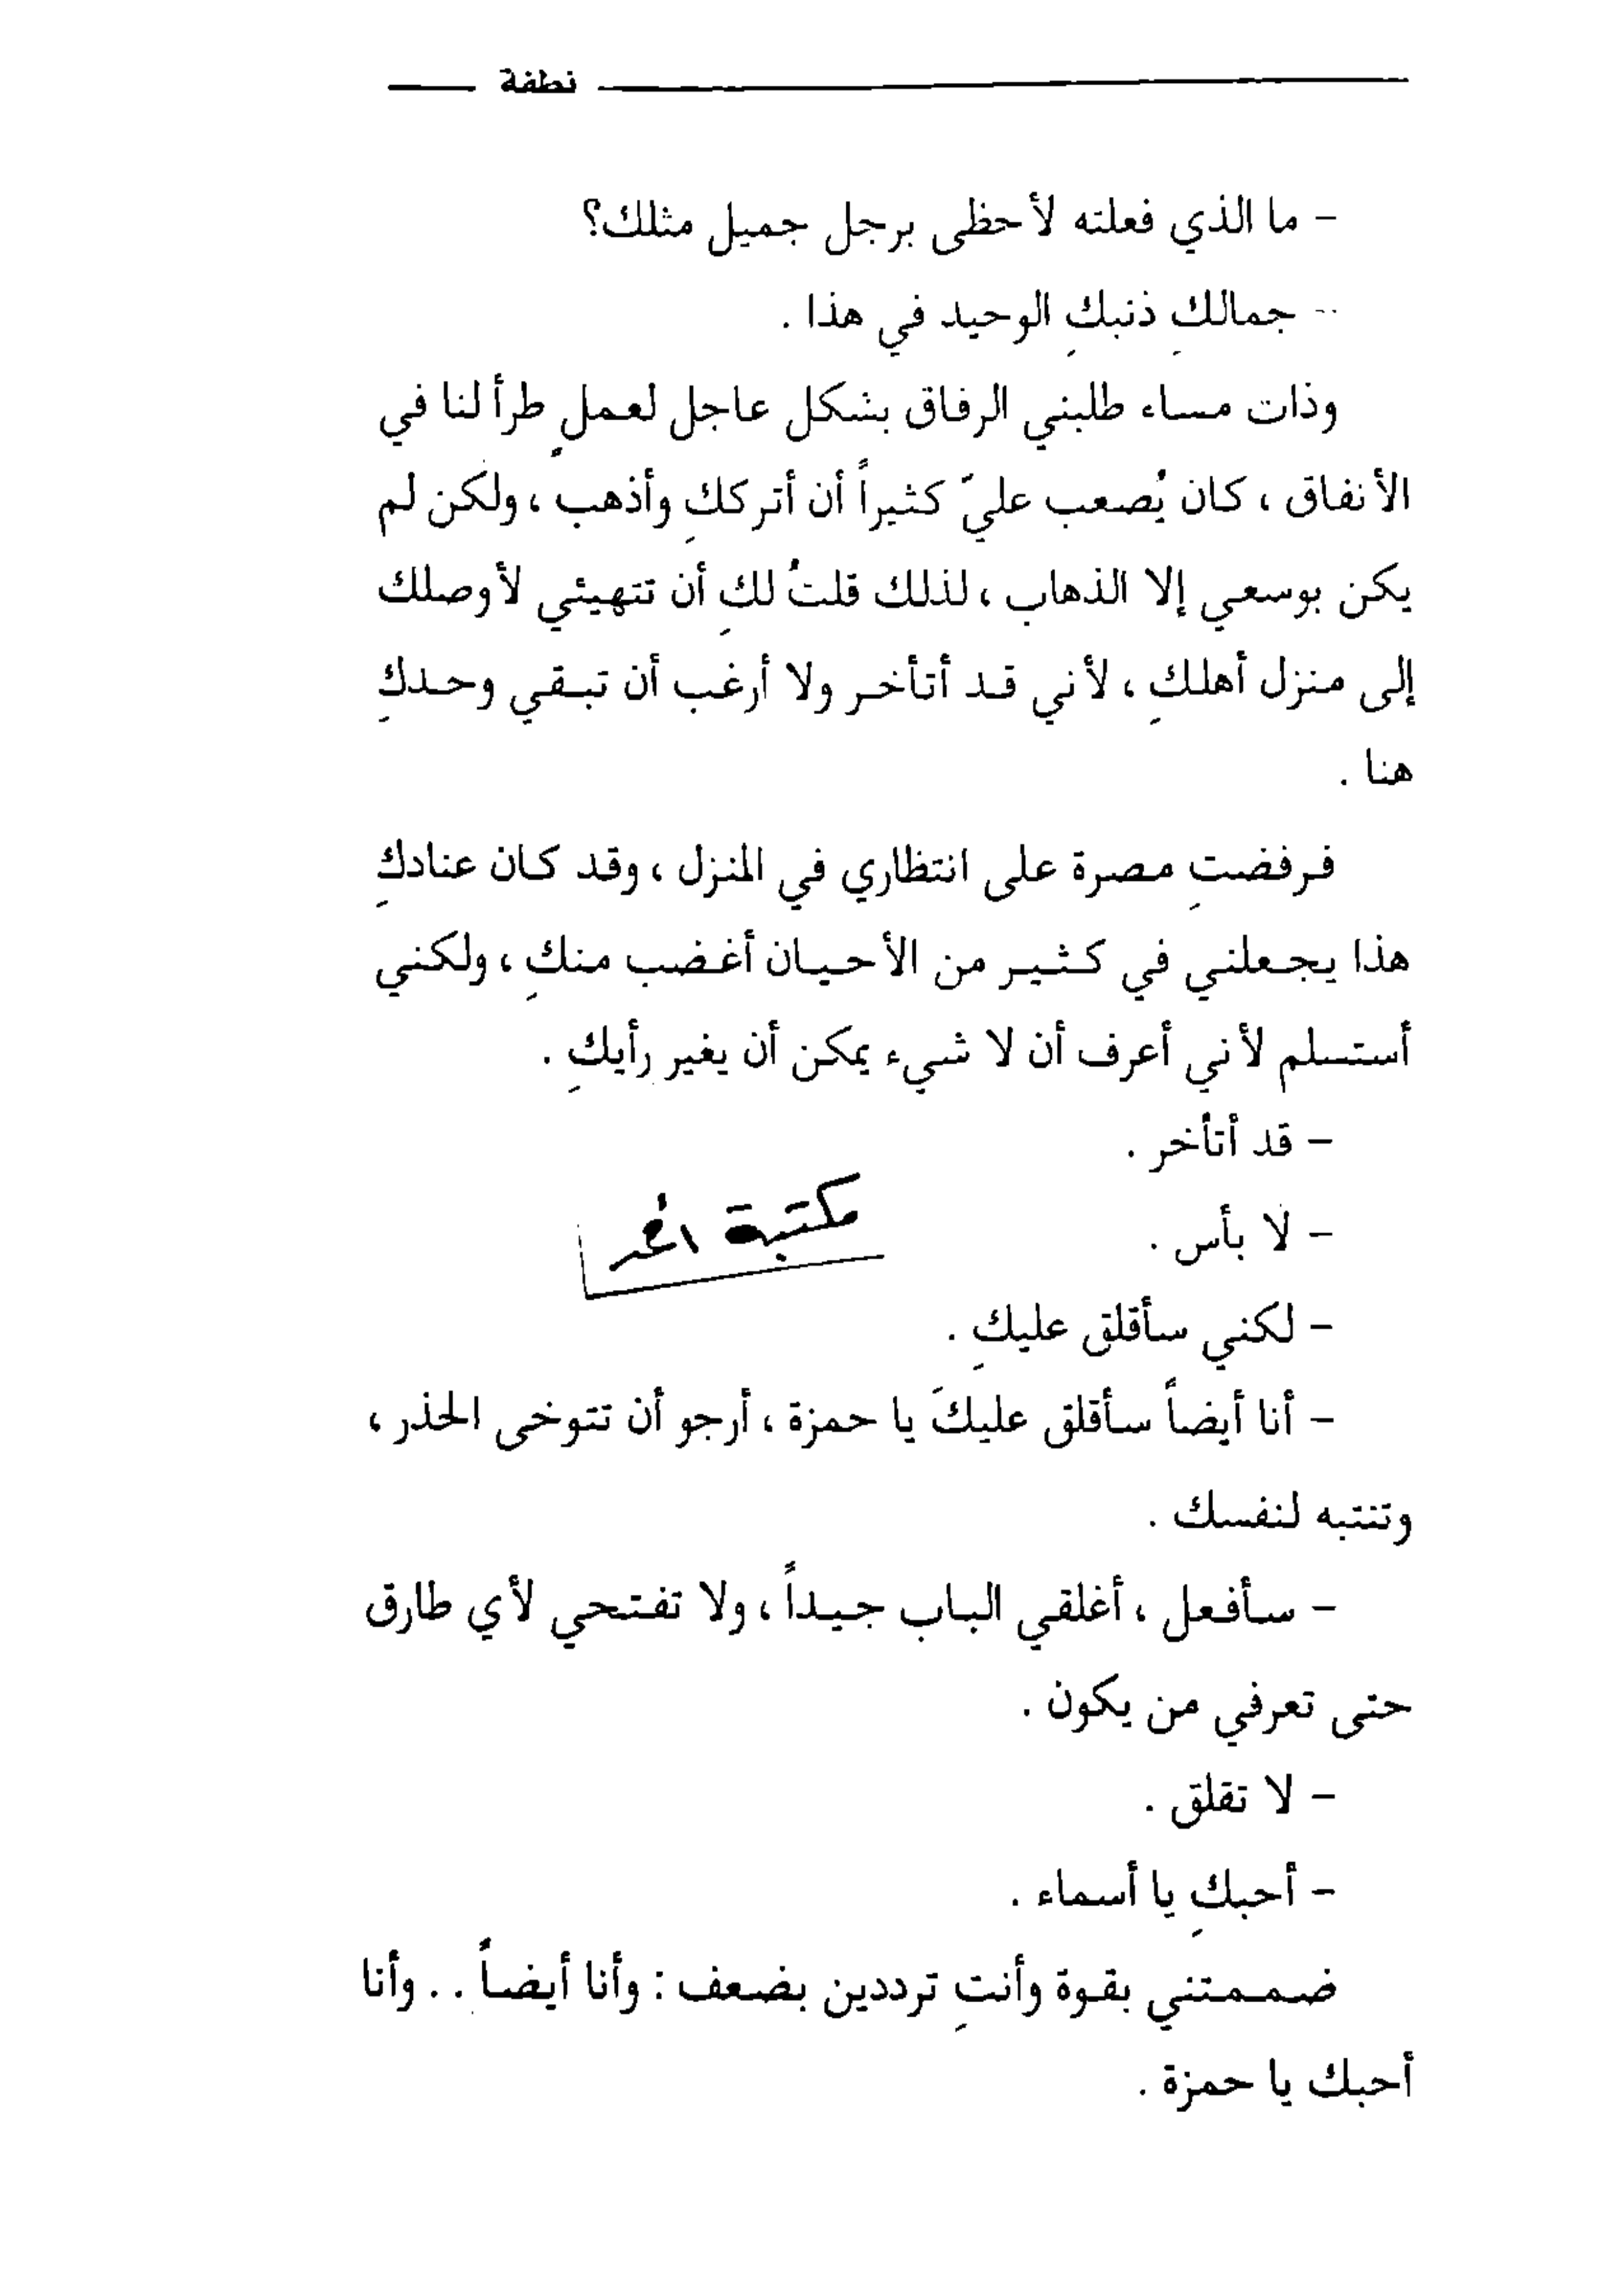 نطفة
- ما الذي فعلته لأحظى برجل جميل مثلك؟
- جمالكِ ذنبكِ الوحيد في هذا .
وذات مساء طلبني الرفاق بشكل عاجل لعملٍ طرأ لنا في
الأنفاق ، كان يُصعب عليّ كثيراً أن أترككِ وأذهب ، ولكن لم
يكن بوسعي إلا الذهاب ، لذلك قلتُ لكِ أن تتهيئي لأوصلك
إلى منزل أهلكِ ، لأني قد أتأخر ولا أرغب أن تبقي وحدكِ
هنا .
فرفضتِ مصرة على انتظاري في المنزل ، وقد كان عنادكِ
هذا يجعلني في كثير من الأحيان أغضب منكِ ، ولكني
أستسلم لأني أعرف أن لا شيء يمكن أن يغير رأيكِ .
- قد أتأخر .
- لا بأس .
مكتبة
- لكني سأقلق عليكِ .
- أنا أيضاً سأقلق عليكَ يا حمزة ، أرجو أن تتوخى الحذر ،
وتنتبه لنفسك .
- سأفعل ، أغلقي الباب جيداً ، ولا تفتحي لأي طارق
حتى تعرفي من يكون .
- لا تقلق .
- أحبكِ يا أسماء .
ضممتني بقوة وأنتِ ترددين بضعف : وأنا أيضاً . . وأنا
أحبك يا حمزة .